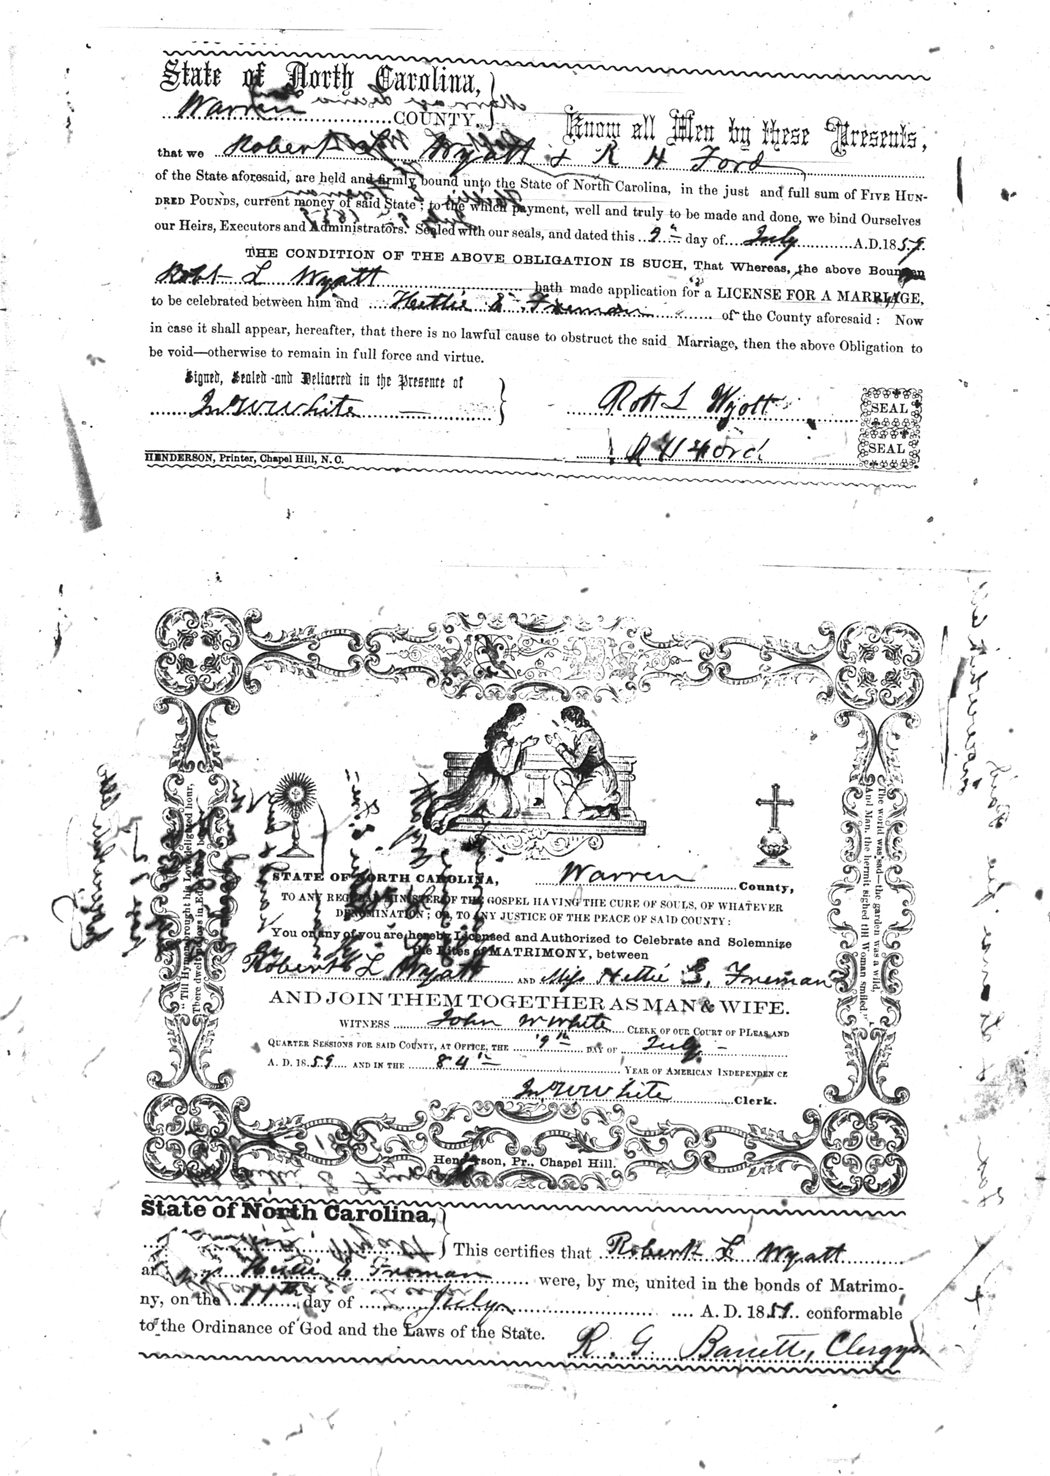 State of North Carolina,
Warren COUNTY.
Know all Men by these Presents,
that we Robert L Wyatt & R H Ford
of the State aforesaid, are held and firmly bound unto the State of North Carolina, in the just and full sum of FIVE HUN-
DRED POUNDS, current money of said State; to the which payment, well and truly to be made and done, we bind Ourselves
our Heirs, Executors and Administrators. Sealed with our seals, and dated this 9th day of July A.D. 1859.
THE CONDITION OF THE ABOVE OBLIGATION IS SUCH, That Whereas, the above Bounden
Robt L Wyatt hath made application for a LICENSE FOR A MARRIAGE,
to be celebrated between him and Hettie E Freman of the County aforesaid: Now
in case it shall appear, hereafter, that there is no lawful cause to obstruct the said Marriage, then the above Obligation to
be void—otherwise to remain in full force and virtue.
Signed, Sealed and Delivered in the Presence of
Jno W White
Robt L Wyatt SEAL
R H Ford SEAL
HENDERSON, Printer, Chapel Hill, N. C.
"Till Hymen brought his Love-delighted hour,
There dwelt no joys in Eden's rosy bower
The world was sad—the garden was a wild,
And Man, the hermit sighed till Woman smiled."
STATE OF NORTH CAROLINA, Warren County,
TO ANY REGULAR MINISTER OF THE GOSPEL HAVING THE CURE OF SOULS, OF WHATEVER
DENOMINATION; OR, TO ANY JUSTICE OF THE PEACE OF SAID COUNTY:
You or any of you are hereby Licensed and Authorized to Celebrate and Solemnize
the Rites of MATRIMONY, between
Robert L Wyatt AND Miss Hettie E, Freman
AND JOIN THEM TOGETHER AS MAN & WIFE.
WITNESS John W White CLERK OF OUR COURT OF PLEAS AND
QUARTER SESSIONS FOR SAID COUNTY, AT OFFICE, THE 9th DAY OF July
A. D. 1859 AND IN THE 84th YEAR OF AMERICAN INDEPENDENCE
Jno W White Clerk.
Henderson, Pr., Chapel Hill.
State of North Carolina,
This certifies that Robert L Wyatt
and Hettie E Freman were, by me, united in the bonds of Matrimo-
ny, on the 11th day of July A. D. 1859. conformable
to the Ordinance of God and the Laws of the State.
R. G. Barrett, Clergyn